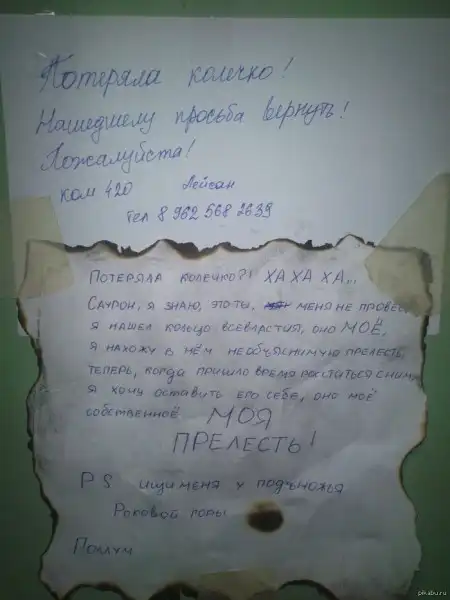 Потеряла колечко!
Нашедшему просьба вернуть!
Пожалуйста!
ком 420 Лейсан
тел 8 962 568 2639
ПОТЕРЯЛА КОЛЕЧКО?! ХА ХА ХА...
САУРОН, Я ЗНАЮ, ЭТО ТЫ, МЕНЯ НЕ ПРОВЕС
Я НАШЕЛ КОЛЬЦО ВСЕВЛАСТИЯ, ОНО МОЁ,
Я НАХОЖУ В НЁМ НЕОБЪЯСНИМУЮ ПРЕЛЕСТЬ,
ТЕПЕРЬ, КОГДА ПРИШЛО ВРЕМЯ РАССТАТЬСЯ С НИМ
Я ХОЧУ ОСТАВИТЬ ЕГО СЕБЕ, ОНО МОЁ
СОБСТВЕННОЕ МОЯ
ПРЕЛЕСТЬ!
PS ИЩИ МЕНЯ У ПОДНОЖЬЯ
РОКОВОЙ ГОРЫ
ГОЛЛУМ
pikabu.ru